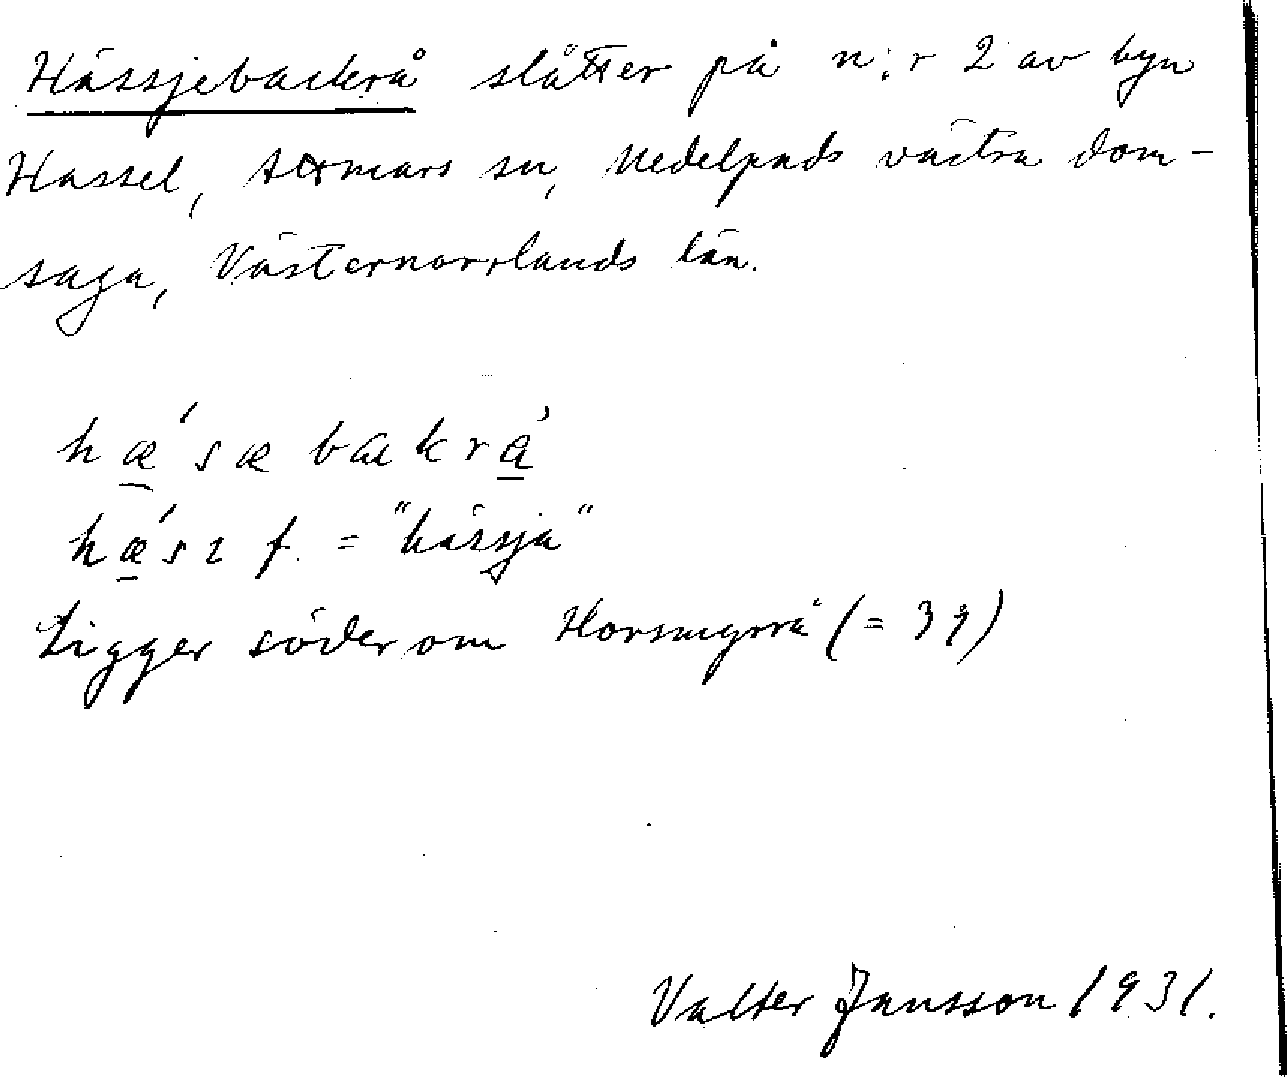 Hässjebackrå slåtter på n:r 2 av byn
Hassel, Stormars sn, Medelpads västra dom-
saga, Västernorrlands län.
hæ´sæ bakrå´
hæ´sɩ f. = "hässja"
Ligger söder om Horsmyrrå (= 39)
Valter Jansson 1931.